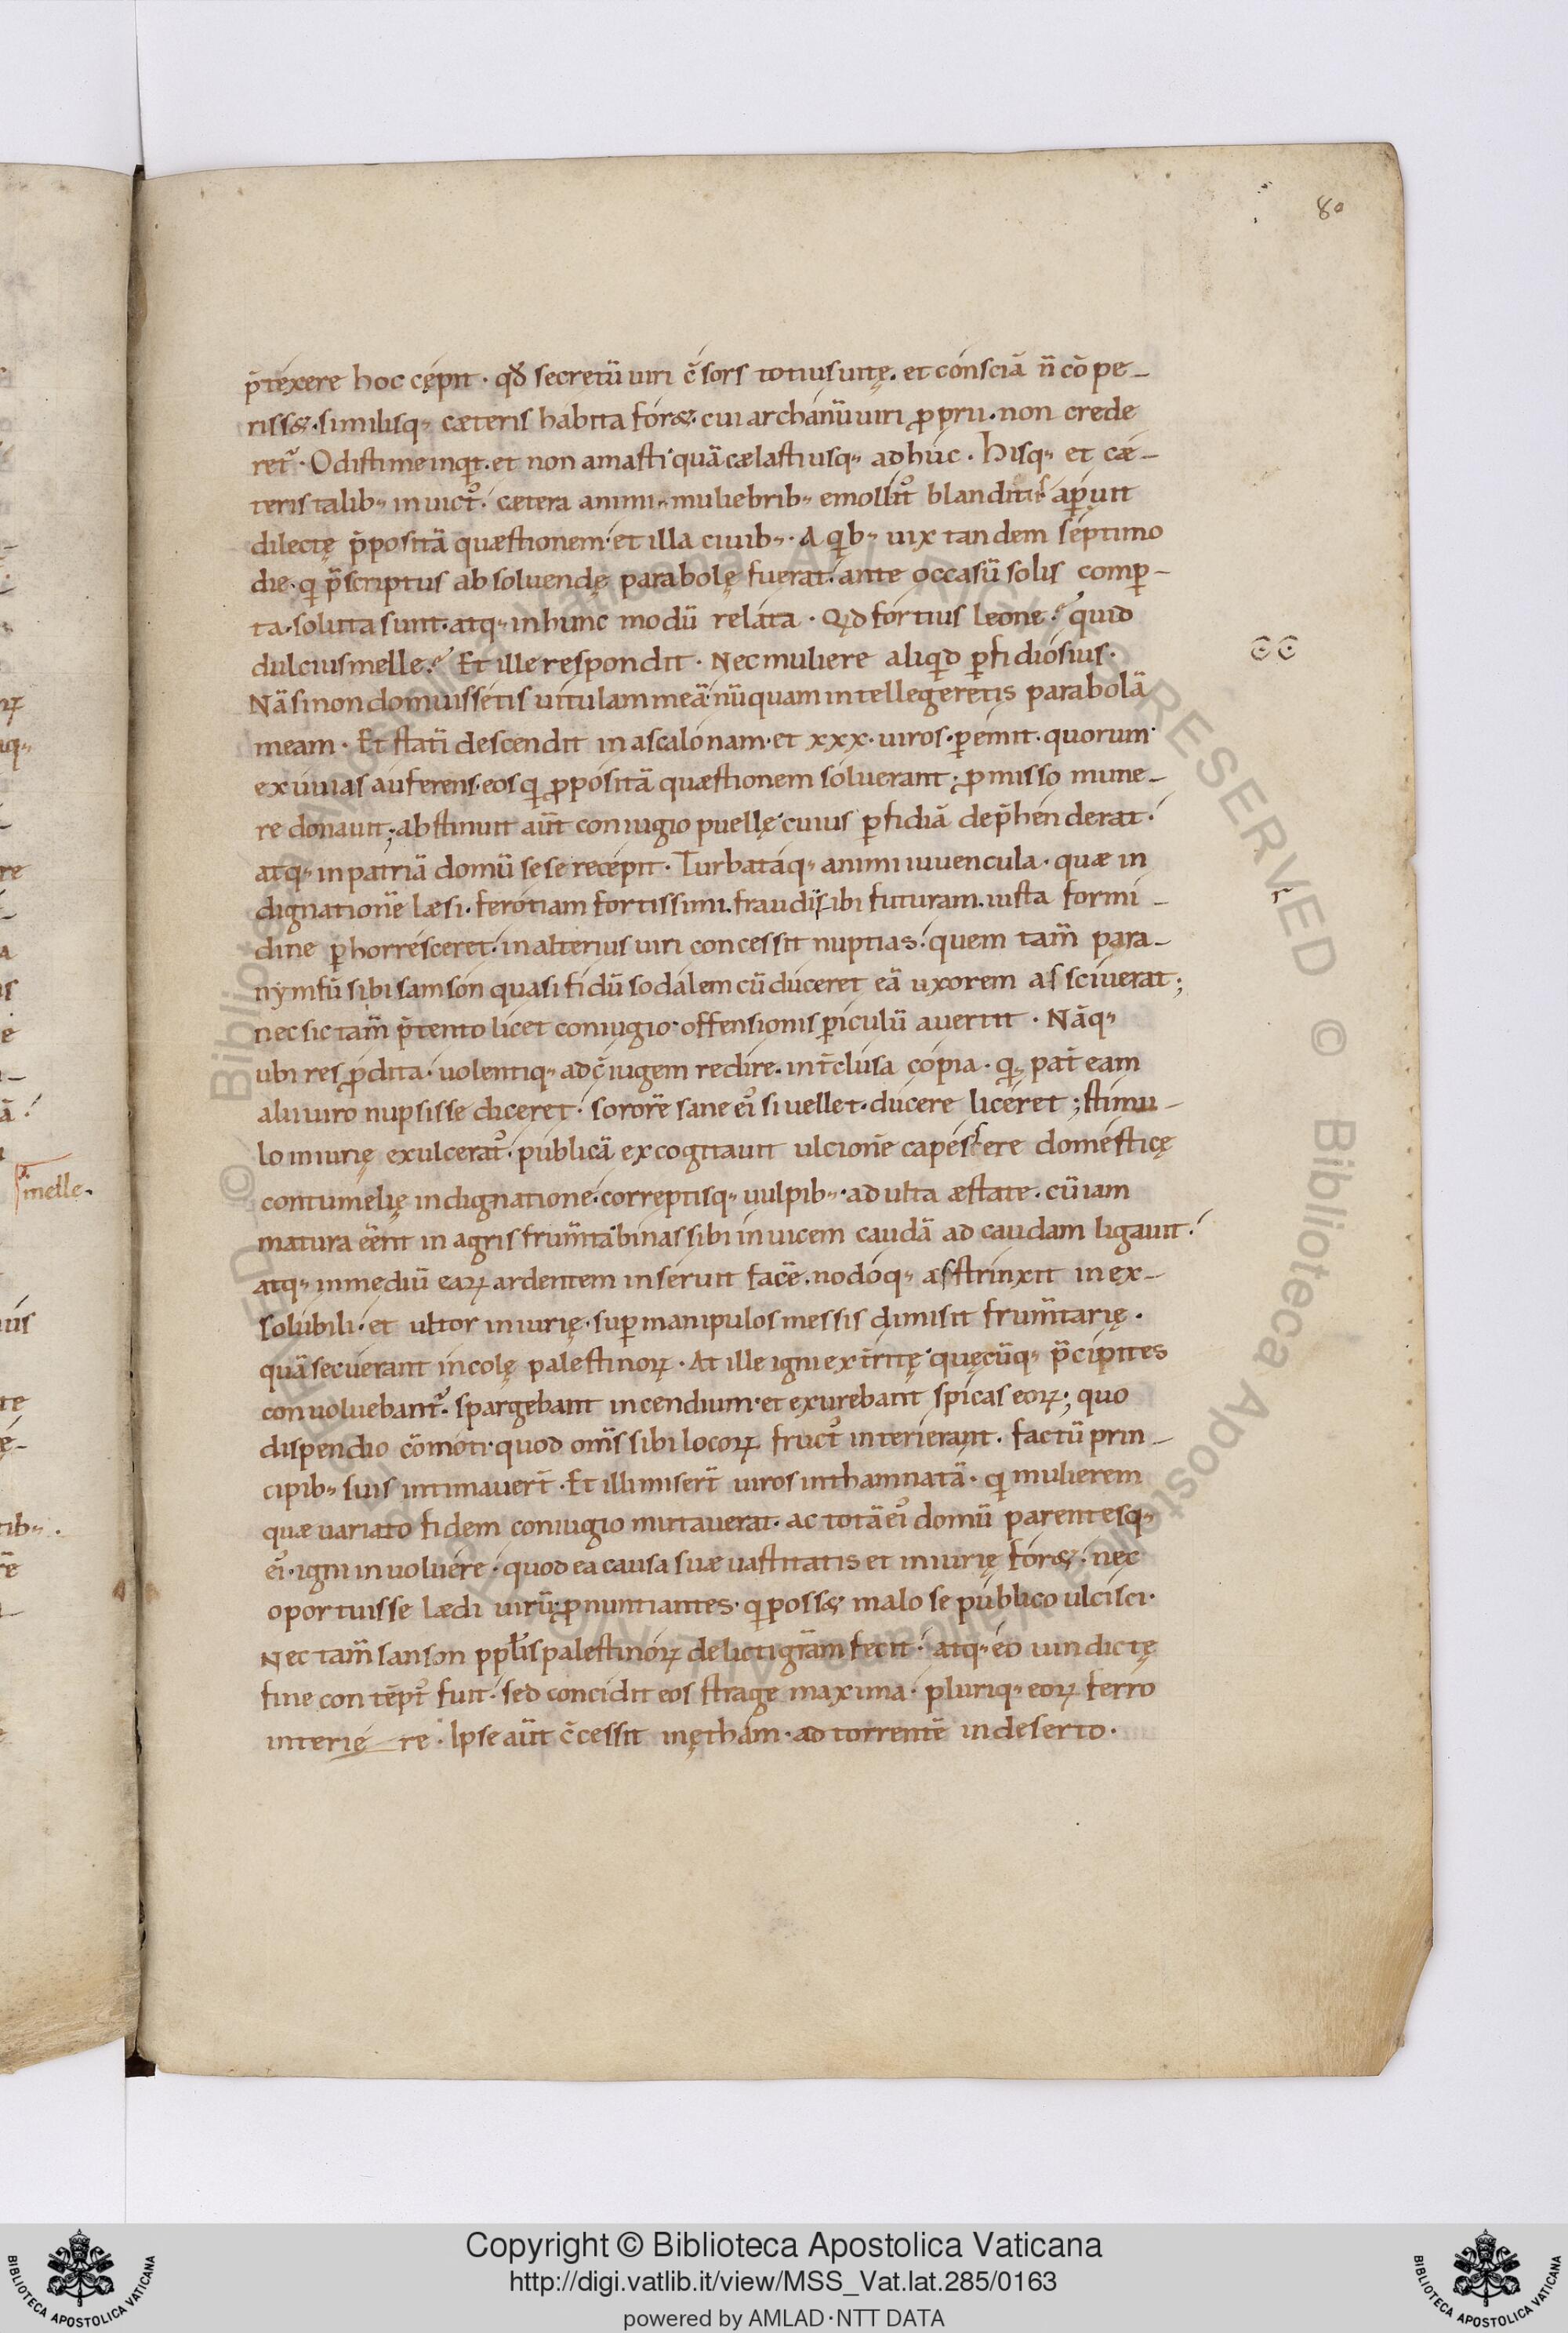 80
p̄texere hoc cępit · qđ secretū uiri c̄sors totius uitę. et consciā n̄ cōpe-
rissꝫ. similisq᷒ cæteris habita forꝫ. cui archanū uiri ꝓprii. non crede
ret᷑. Odisti me inqͥt. et non amasti quā cælasti usq᷒ adhuc. Hisq᷒ et cæ-
teris talib᷒ inuict᷒. cætera animi muliebrib᷒ emollit᷒ blanditiis aꝑuit
dilectę p̄positā quæstionem et illa ciuib᷒. A qͥb᷒ uix tandem septimo
die. qͥ p̄scriptus absoluendę parabolę fuerat. ante occasū solis comꝑ-
ta. soluta sunt. atq᷒ in hunc modū relata. Qͥd fortius leone? quid
dulcius melle? Et ille respondit. Nec muliere aliqͥd ꝑfidiosius.
Nā si non domuissetis uitulam meā nūquam intellegeretis parabolā
meam. Et statī descendit in ascalonam. et xxx. uiros. ꝑemit. quorum
exuuias auferens. eos qͥ ꝓpositā quæstionem soluerant. ꝓmisso mune-
re donauit; abstinuit aūt coniugio puellę cuius ꝑfidiā dep̄henderat.
atq᷒ in patriā domū sese recepit. Turbataq᷒ animi iuuencula. quæ in
dignationē læsi. ferotiam fortissimi. fraudi sibi futuram. iusta formi-
dine ꝑhorresceret. in alterius uiri concessit nuptias. quem tam̄ para-
nymfū sibi samson quasi fidū sodalem cū duceret eā uxorem assciuerat;
nec sic tam̄ p̄tento licet coniugio offensionis ꝑiculū auertit. Nāq᷒
ubi res ꝓdita. uolentiq᷒ ad c̄iugem redire. int̄clusa copia. qͥ pat̄ eam
alii uiro nupsisse diceret. sororē sane ei᷒ si uellet. ducere liceret; stimu-
lo iniurię exulcerat᷒. publicā excogitauit ulcionē capessere domesticę
contumelię indignatione. correptisq᷒ uulpib᷒. adulta æstate. cū iam
matura eēnt in agris frum̄ta binas sibi inuicem caudā ad caudam ligauit.
atq᷒ in mediū eaꝝ ardentem inseruit facē. nodoq᷒ asstrinxit inex-
solubili. et ultor iniurię. suꝑ manipulos messis dimisit frum̄tarię.
quā secuerant incolę palestinoꝝ. At ille igni ext̄ritę quęcūq᷒ p̄cipites
conuoluebant᷑. spargebant incendium. et exurebant spicas eoꝝ; quo
dispendio cōmoti quod om̄s sibi locoꝝ fruct᷒ interierant. factū prin-
cipib᷒ suis intimauer̄t. Et illi miser̄t uiros in thamnatā. qͥ mulierem
quæ uariato fidem coniugio mutauerat. ac totā ei᷒ domū parentesq᷒
ei᷒. igni inuoluere. quod ea causa suæ uastitatis et iniurię forꝫ. nec
oportuisse lædi uirū ꝓnuntiantes. qͥ possꝫ malo se publico ulcisci.
Nec tam̄ sanson pp̄lis palestinoꝝ delicti gr̄am fecit. atq᷒ eo uindictę
fine contēpt᷒ fuit. sed concidit eos strage maxima. pluriq᷒ eoꝝ ferro
interię-re. Ipse aūt c̄cessit in ętham. ad torrentē in deserto.
melle.
Copyright © Biblioteca Apostolica Vaticana
http://digi.vatlib.it/view/MSS_Vat.lat.285/0163
powered by AMLAD·NTT DATA
BIBLIOTECA APOSTOLICA VATICANA
BIBLIOTECA APOSTOLICA VATICANA